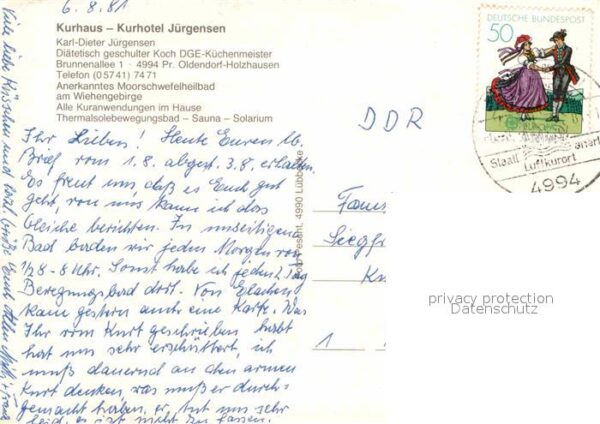 6.8.81
Kurhaus – Kurhotel Jürgensen
Karl-Dieter Jürgensen
Diätetisch geschulter Koch DGE-Küchenmeister
Brunnenallee 1 · 4994 Pr. Oldendorf-Holzhausen
Telefon (0 57 41) 74 71
Anerkanntes Moorschwefelheilbad
am Wiehengebirge
Alle Kuranwendungen im Hause
Thermalsolebewegungsbad – Sauna – Solarium
Ihr Lieben! Heute Euren lb.
Brief vom 1.8. abgest. 3.8. erhalten.
Es freut uns, daß es Euch gut
geht, von uns kann ich das
Gleiche berichten. Im
Bad baden wir jeden Morgen von
1/2 8-8 Uhr. Sonst habe ich jeden 2. Tag
Bewegungsbad dort. Von
kam gestern auch eine Karte. Was
Ihr vom Kurt geschrieben habt
hat uns sehr erschüttert, ich
muß dauernd an den armen
Kurt denken, was muß er durch-
gemacht haben, er tut uns sehr
leid, es ist nicht zu fassen.
Viele liebe Küsschen und herzl. Grüße Euch Allen
DEUTSCHE BUNDESPOST
50
Staatl.
Luftkurort
4994
DDR
4990 Lübbecke
1
privacy protection
Datenschutz